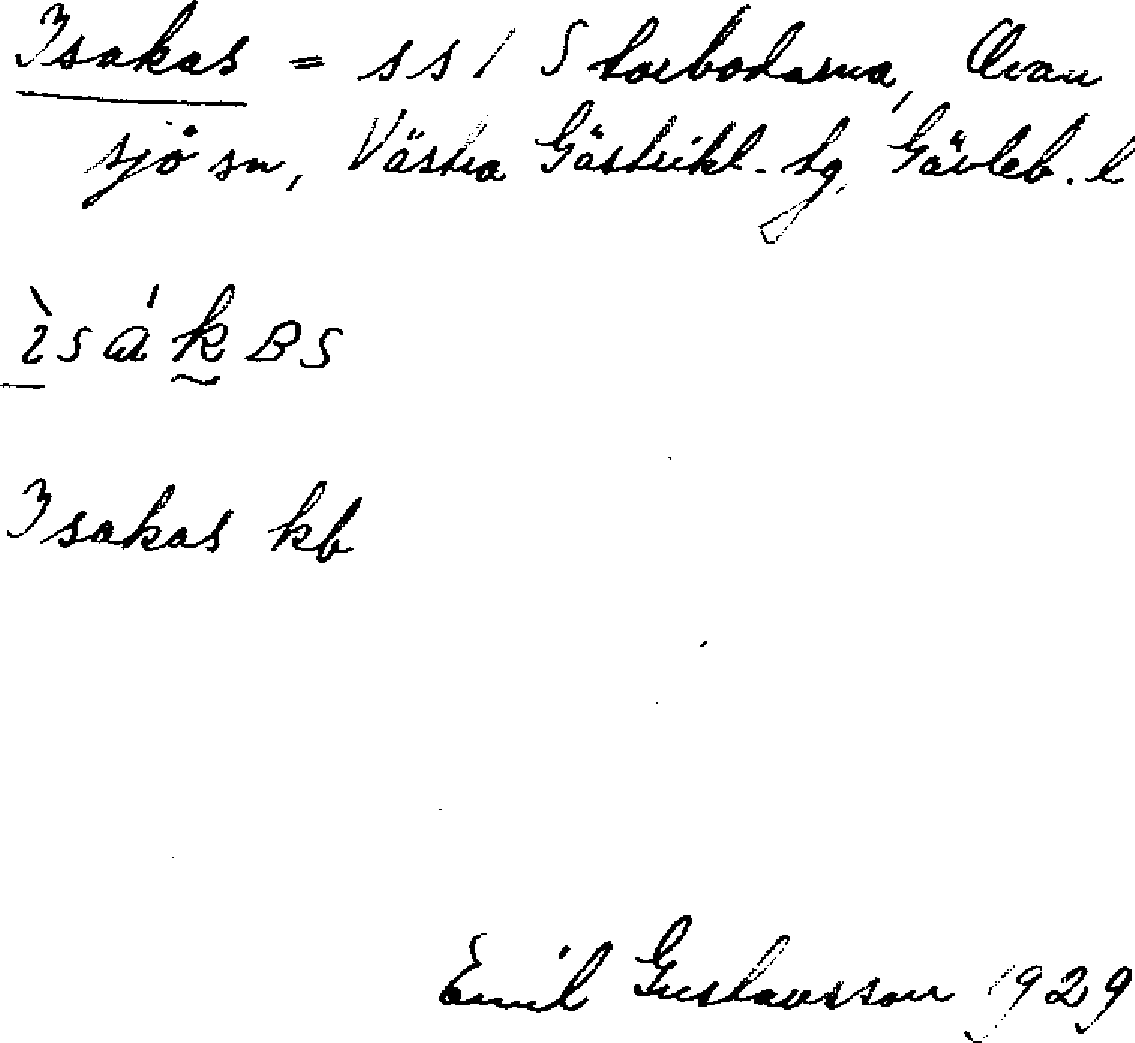 Isakas = s s / Storbodarna, Ovan
sjö sn, Västra Gästrikl. tg, Gävleb. l
ìsákBS
Isakas kb
Emil Gustavsson 1929